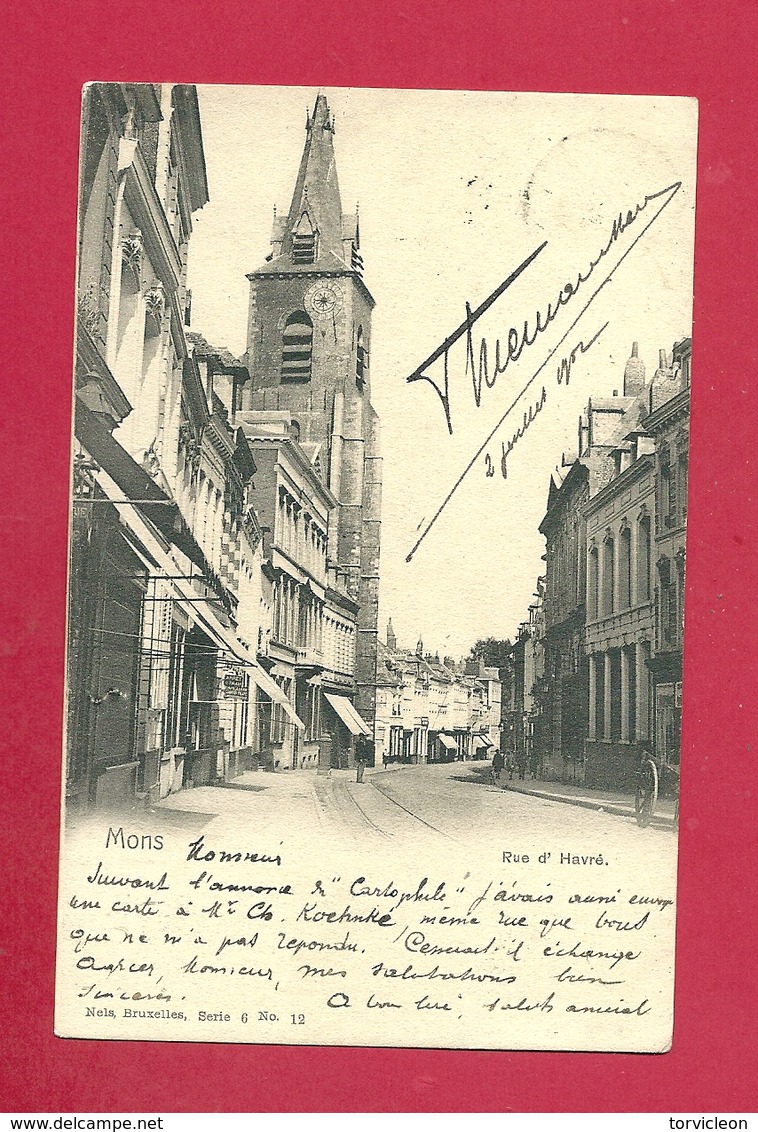 2 juillet 1902
Mons
Rue d' Havré.
Monsieur
Suivant l'annonce du "Cartophile" j'avais aussi envoyé
une carte à Mr Ch. Koehnké même rue que vous
que ne m'a pas repondu. Cesserait il échange
Agréer, Monsieur, mes salutations bien
sincères. A vous lire, saluts amicaux
Nels, Bruxelles, Serie 6 No. 12
delcampe.net
torvicleon